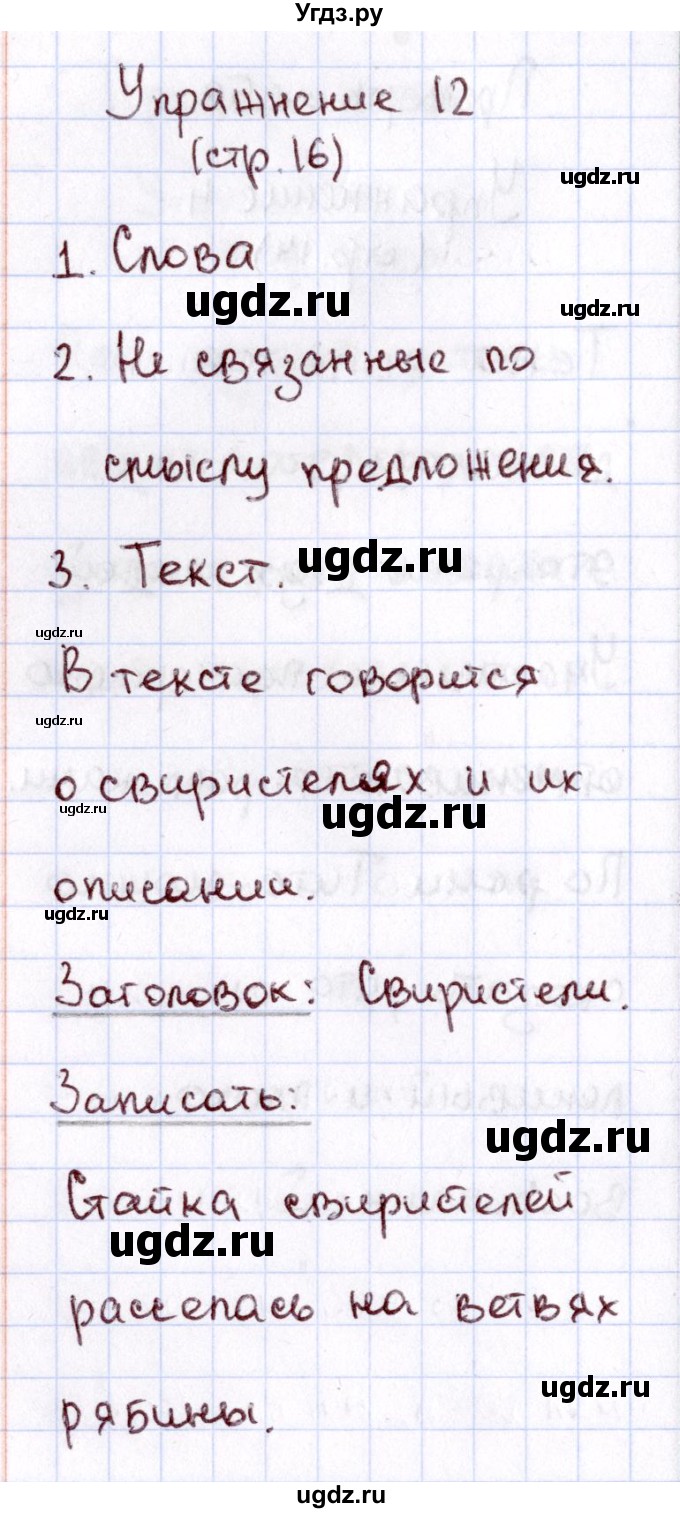 Угдз.ру
Упражнение 12
(стр. 16)
ugdz.ru
1. Слова
ugdz.ru
ugdz.ru
2. Не связанные по
смыслу предложения.
3. Текст.
ugdz.ru
ugdz.ru
В тексте говорится
ugdz.ru
о свиристелях и их
ugdz.ru
ugdz.ru
описании.
ugdz.ru
Заголовок: Свиристели.
Записать:
ugdz.ru
Стайка свиристелей
ugdz.ru
расселась на ветвях
ugdz.ru
рябины.
ugdz.ru